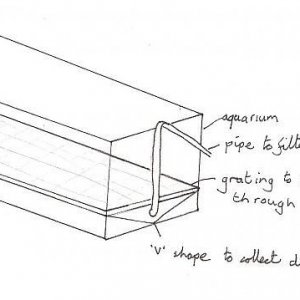 aquarium
pipe to filt
grating to
through
'V' shape to collect d